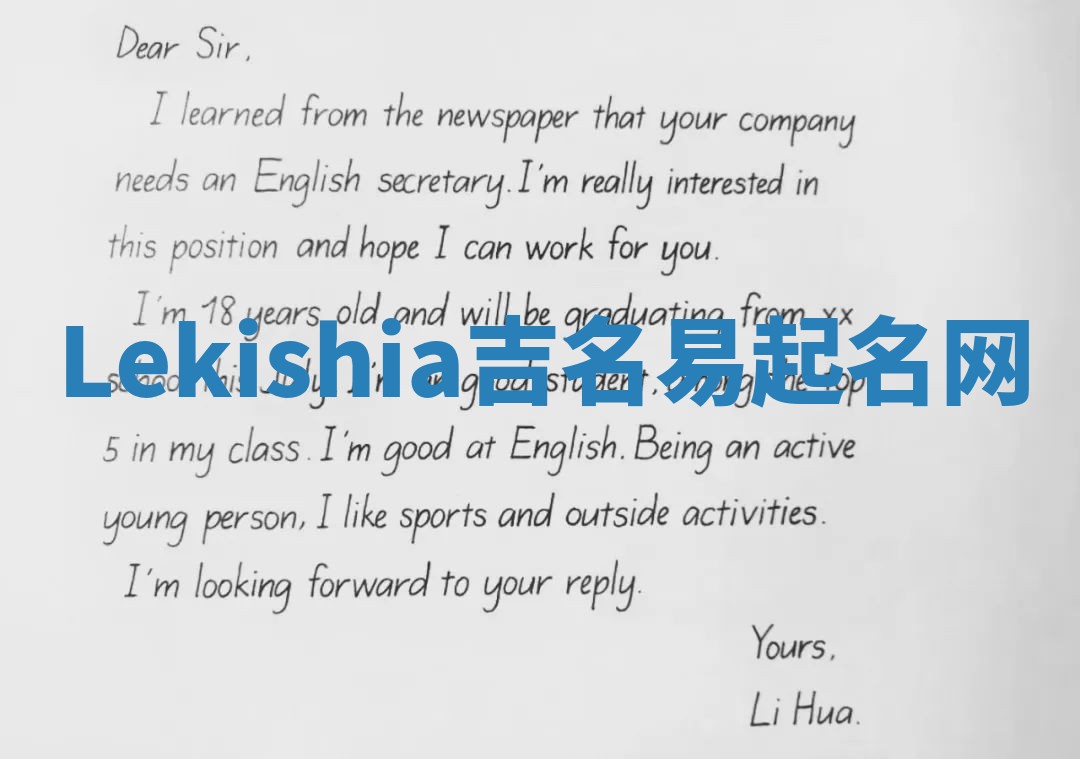 Dear Sir,
I learned from the newspaper that your company
needs an English secretary. I'm really interested in
this position and hope I can work for you.
I'm 18 years old and will be graduating from xx
Lekishia吉名易起名网
school this July. I'm good student, among the top
5 in my class. I'm good at English. Being an active
young person, I like sports and outside activities.
I'm looking forward to your reply.
Yours,
Li Hua.